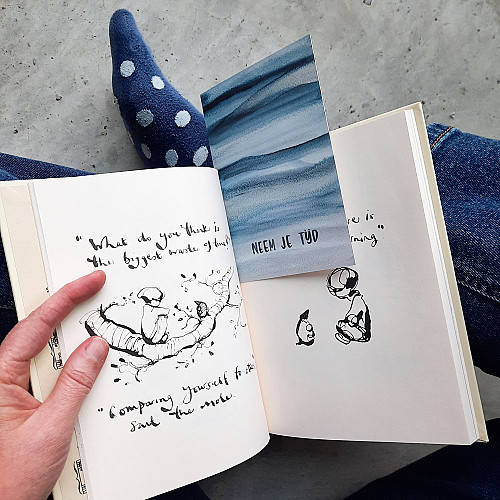 "What do you think is
the biggest waste of
"Comparing yourself to
said the mole.
NEEM JE TIJD
is